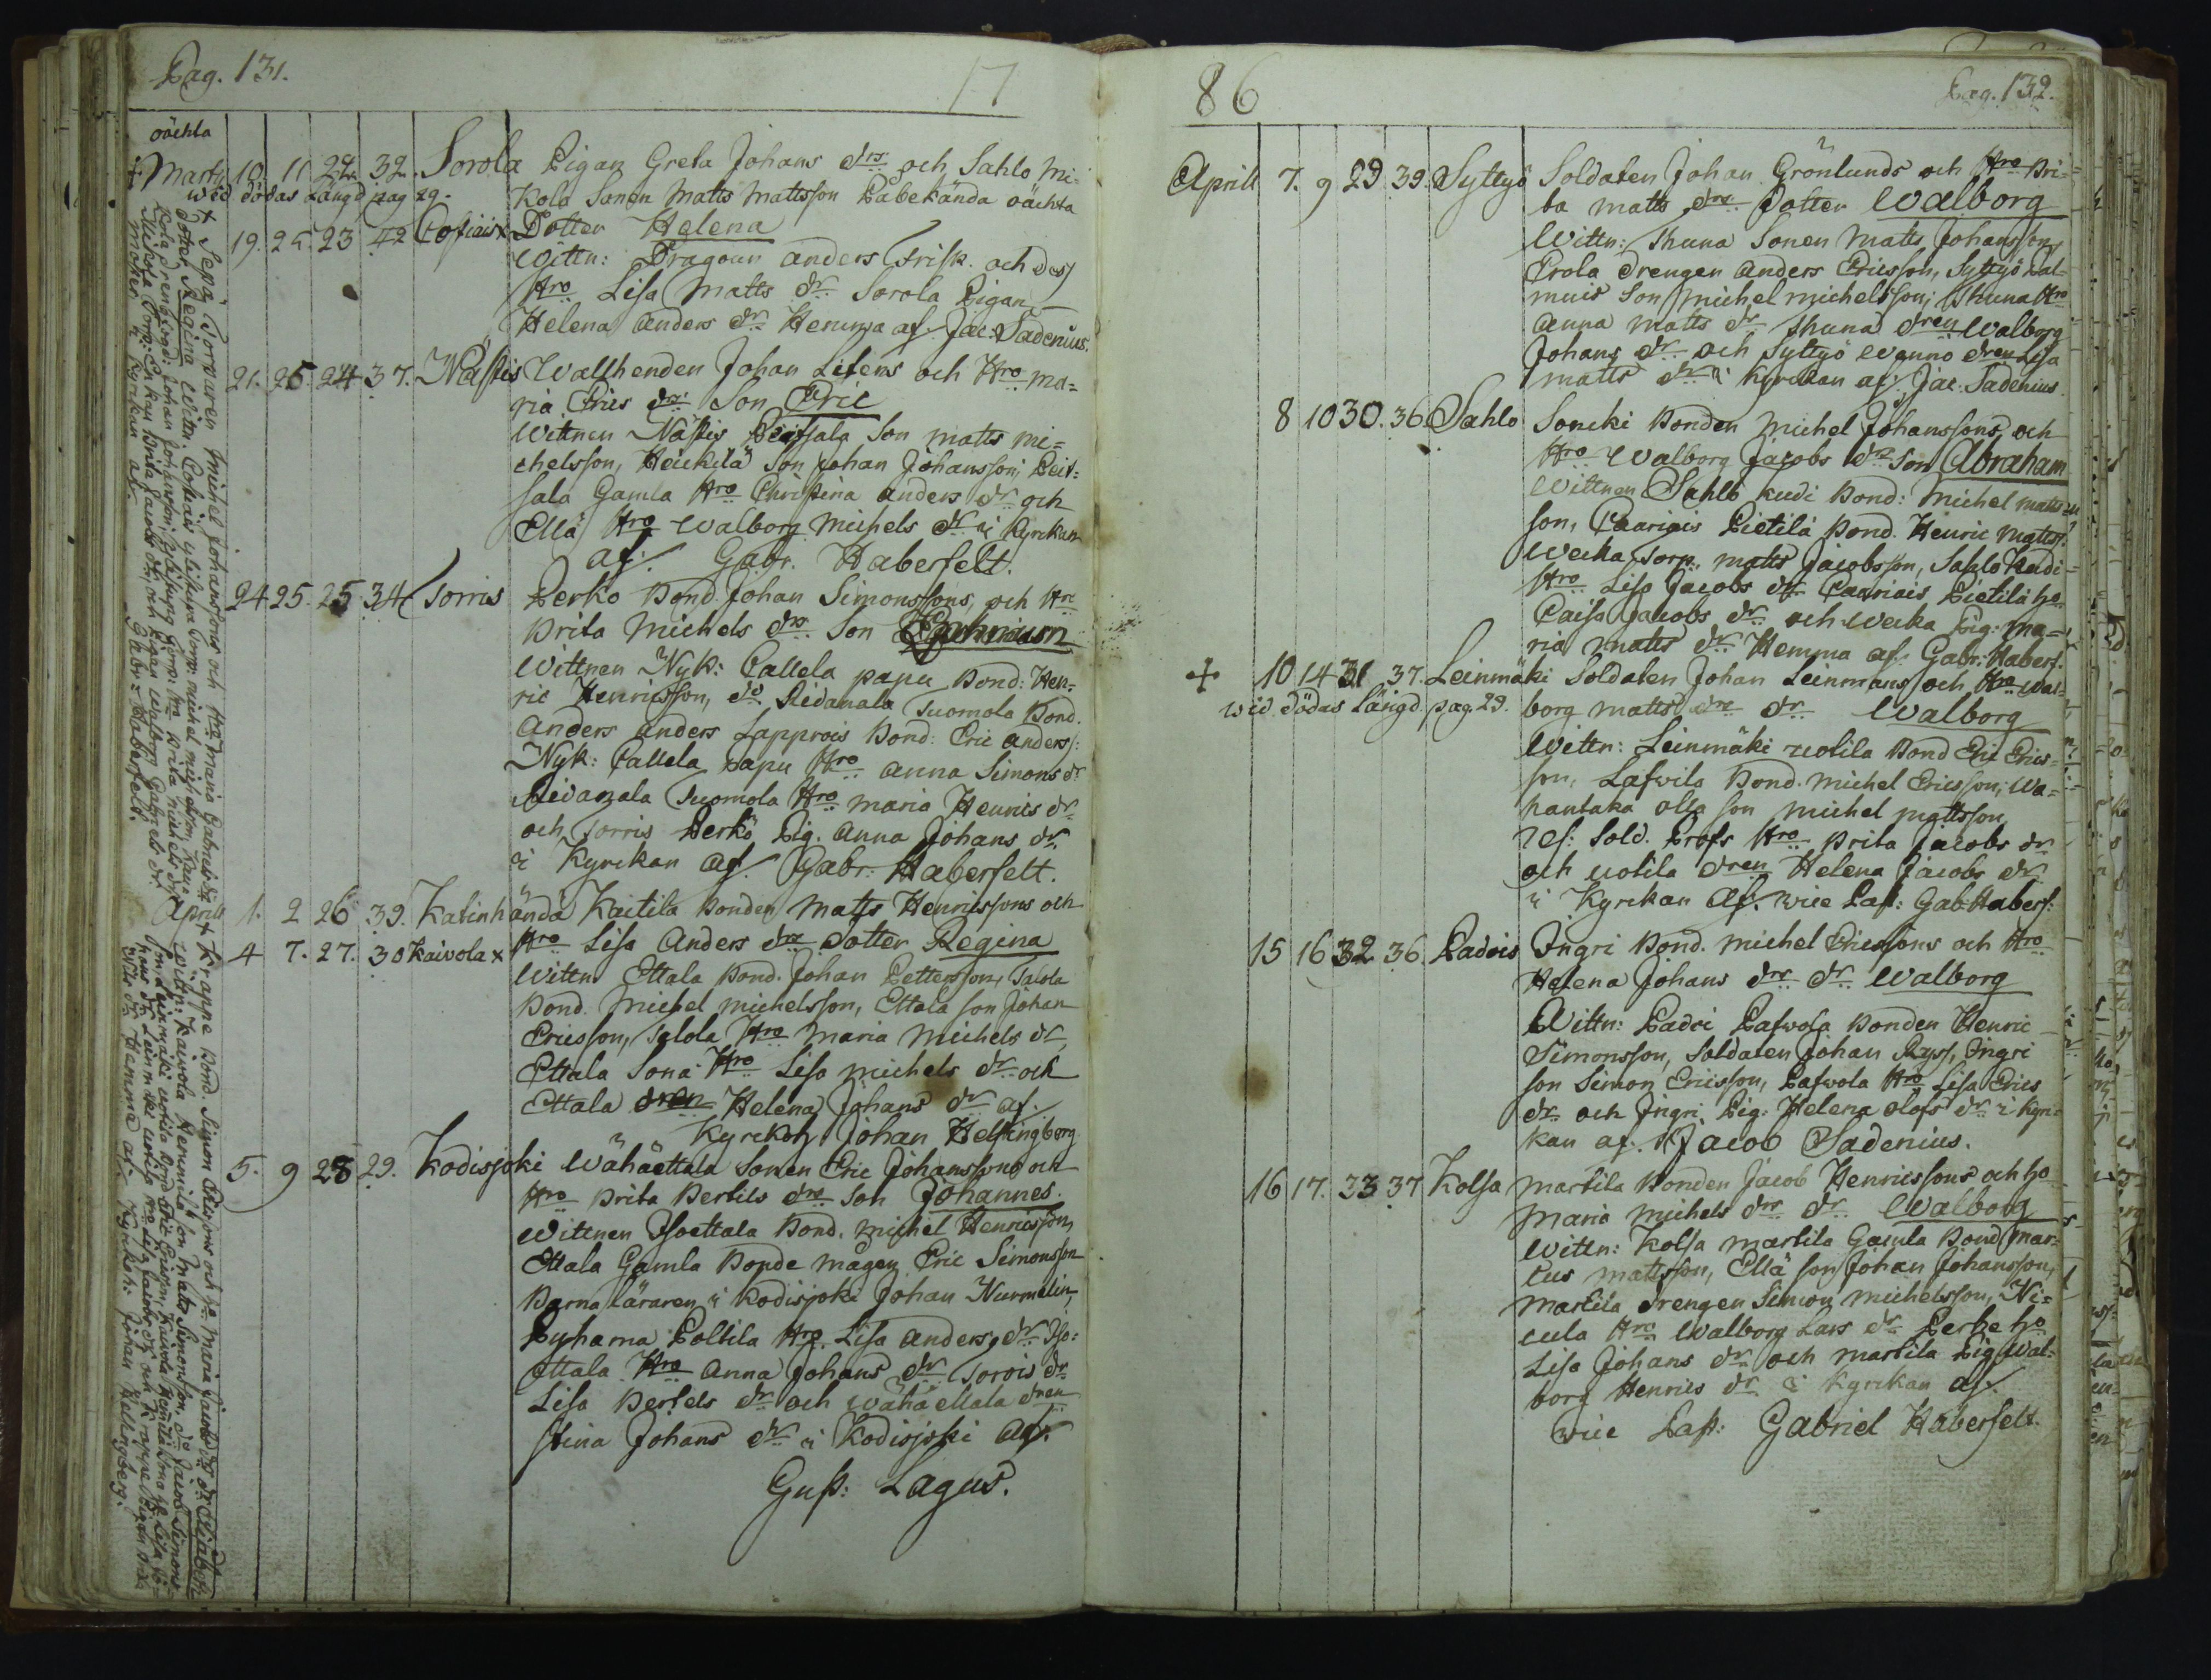 Pag. 131.
17
oächta
+ Marty 10. 11 22. 32. Sorola Pigan Greta Johans drs och Sahlo Mi-
wid dödas Längd pag 29.
kola Sonen Matts Mattsson Rabekända oächta
19. 25. 23 42 Cofiais x Dotter Helena
Wittn: Dragoun Anders Frisk. och dess
Hro Lisa Matts dr Sorola Pigan
Helena Anders dr Hemma af. Jac: Sadenius.
21. 25 24 37. Nästis Wallhenden Johan Litens och Hro Ma-
ria Erics drs Son Eric
Wittnen Nästis Peitsala Son Matts Mi-
chelsson, Heickilä Son Johan Johansson; Peit-
sala Gamla Hro Christina Anders dr och
Ellä Hro Walborg Michels dr i Kyrckan
af. Gabr. Haberfelt.
24 25. 25 34 Sorris Perko Bond. Johan Simonssons, och Hro
Brita Michels drs Son
Wittnen Nyk: Callela papu Bond: Hen-
ric Henricsson, do Ridamala Tuomola Bond.
Anders Anders Lapprois Bond: Eric Anderss:
Nyk: Callela papu Hro Anna Simons dr
Ridamala Tuomola Hro Maria Henrics dr
och Sorris Perkö Pig. Anna Johans dr
i Kyrckan af. Gabr: Haberfelt.
April 1. 2 26 39. Katinhändä Kaitila Bonden Matts Henricssons och
4 7. 27. 30 Kaivola x Hro Lisa Anders drs Dotter Regina
Wittn Ettala Bond. Johan Pettersson, Salola
Bond. Michel Michelsson, Ettala Son Johan
Ericsson, Salola Hro Maria Michels dr
Ettala Sona Hro Lisa Michels dr och
Ettala dren Helena Johans dr af.
Kyrckoh: Johan Hellsingberg
5. 9 28 29. Kodisjoki Wähäettala Sonen Eric Johanssons och
Hro Brita Bertils drs Son Johannes.
Wittnen Isoettala Bond. Michel Henricsson,
Ettala Gamla Bonde Mågen Eric Simonsson
Barna läraren i Kodisjoki Johan Nurmelin,
Pyhama Poltila Hro. Lisa Anders dr Iso-
ettala Hro Anna Johans dr Sorois dr
Lisa Bertels dr och Wähäettala dren
Stina Johans dr i Kodisjoki af.
Gust: Lagus.
x Seppä Torwaren Michel Johanssons och Hro Maria Gabriels drs
Dotter Regina Wittn: Cofiais
Gabr: Haberfelt.
x Krappe Bond. Simon Erissons och Ho Maria Jacobs drs dr Elisabeth
Wittn: Kaivola Hemmila Son Matts Simonsson, do Jacob Simons-
son, Leinmäki uotila Bond Eric Ericsson, Kaivola Hemmila Hro Lisa Jo-
hans dr Leinmäki uotila Hro Lisa Jacobs dr och Krappe Pigan
Hemma af: Kyrckoh: Johan Hellsingberg.
86
Pag. 132.
April 7. 9 29 39. Syttyö Soldaten Johan Grönlunds och Hro Bri-
ta Matts drs Dotter Walborg
Wittn: Ihuna Sonen Matts Johansson,
Erola Drengen Anders Ericsson, Syttyö Pal-
muis Son Michel Michelsson; Ihuna Hro
Anna Matts dr Ihuna dren Walborg
Johans dr och Syttyö Wenno dren Lisa
Matts dr i Kyrckan af: Jac. Sadenius.
8 10 30. 36 Sahlo Soncki Bonden Michel Johanssons, och
Hro Walborg Jacobs drs Son Abraham
Wittnen Sahlo Kudi Bond: Michel Matts-
son, Caariais Pietilä Bond. Henric Mattss:
Wecka Sorp. Matts Jacobsson, Sahlo Kudi
Hro Lisa Jacobs dr Caariais Pietilä ho
Caisa Jacobs dr och Wecka Pig: Ma-
ria Matts dr Hemma af. Gabr: Haberf.
+ 10 14 31 37. Leinmäki Soldaten Johan Leinmans och Hro Wal-
wid dödas Längd. pag. 29. borg Matts drs dr Walborg
Wittn: Leinmäki uotila Bond Eric Erics-
son, Lafwila Bond. Michel Ericsson; Wa-
hantaka olla Son Michel Mattsson,
Ref: Sold. Profs Hro Brita Jacobs dr
och uotila dren Helena Jacobs dr
i Kyrckan af. Vice Past: Gab: Haberf:
15 16 32 36. Padois Ingri Bond. Michel Ericssons och Hro
Helena Johans drs dr Walborg
Wittn: Padoi Pafwola Bonden Henric
Simonsson, Soldaten Johan Ryss, Ingri
Son Simon Ericsson, Pafwola Hro Lisa Erics
dr och Ingri Pig: Helena Olofs dr i Kyr-
kan af. Jacob Sadenius.
16 17. 33 37 Kolsa Martila Bonden Jacob Henricssons och ho
Maria Michels drs dr Walborg
Wittn: Kolsa Martila Gamla Bond Mar-
cus Mattsson, Ellä Son Johan Johansson,
Martila Drengen Simon Michelsson, Ni-
cula Hro Walborg Lars dr Perhe ho
Lisa Johans dr och Martila Pig. Wal-
borg Henrics dr i Kyrckan af.
Vice Past: Gabriel Haberfelt.